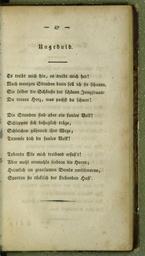 — 47 —
Ungeduld.
Es weilet mich hie, es weilet mich her!
Nach wenigen Stunden dann soll ich sie schauen,
Sie selber die Schönste der schönen Jungfrauen:
Du treues Herz, was pochst du schwer?
Die Stunden sind aber ein faules Volk!
Schleppen sich behaglich träge,
Schleichen gähnend ihre Wege;
Tummle dich du faules Volk!
Tobende Eile mich treibend erfaßt!
Aber wohl niemals liebten die Horen;
Heimlich im grausamen Bunde verschworen,
Spotten sie tückisch der Liebenden Hast.